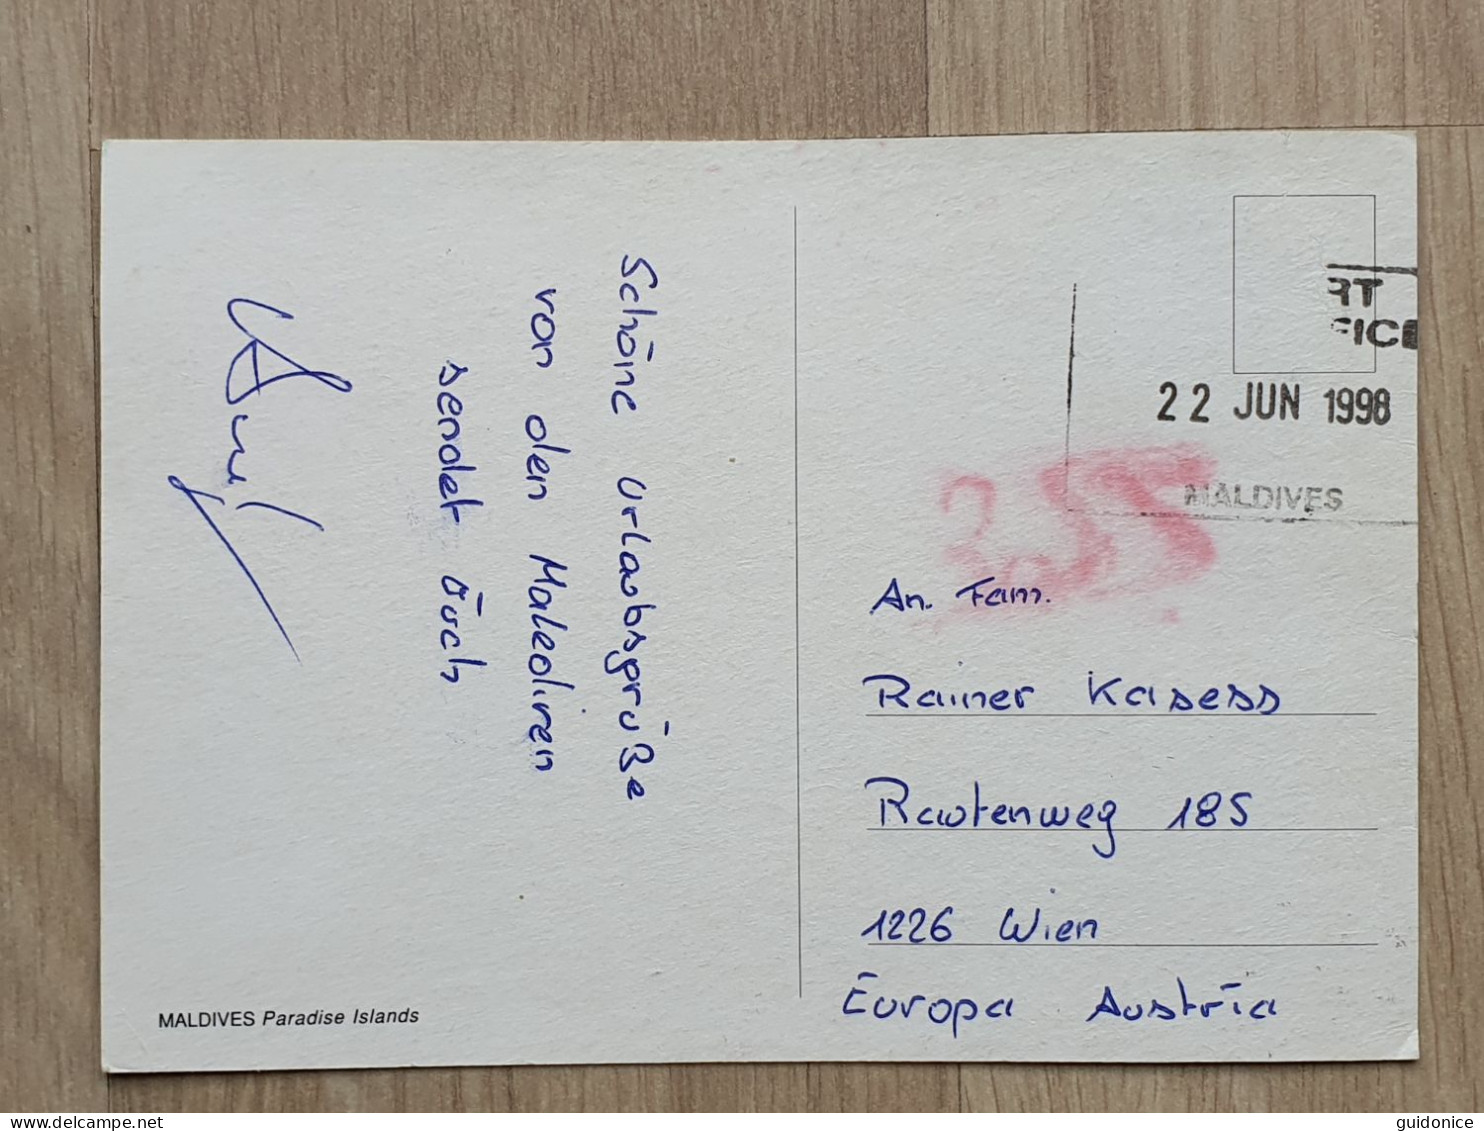 Schöne Urlaubsgrüße
von den Malediven
sendet Euch
MALDIVES Paradise Islands
RT
FICE
22 JUN 1998
MALDIVES
An. Fam.
Rainer Kasess
Rautenweg 185
1226 Wien
Europa Austria
guidonice